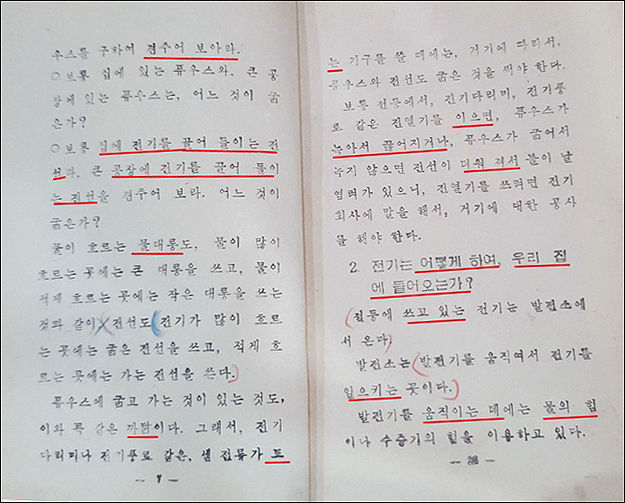 우스를 구하여 견주어 보아라.
○보통 집에 있는 퓨우스와, 큰 공
장에 있는 퓨우스는, 어느 것이 굵
은가?
○보통 집에 전기를 끌어 들이는 전
선과. 큰 공장에 전기를 끌어 들이
는 전선을 견주어 보라. 어느 것이
굵은가?
물이 흐르는 물대롱도, 물이 많이
흐르는 곳에는 큰 대롱을 쓰고, 물이
적게 흐르는 곳에는 작은 대롱을 쓰는
것과 같이 전선도 전기가 많이 흐르
는 곳에는 굵은 전선을 쓰고, 적게 흐
르는 곳에는 가는 전선을 쓴다.
퓨우스에 굵고 가는 것이 있는 것도,
이와 꼭 같은 까닭이다. 그래서, 전기
다리미나 전기풍로 같은, 센 전류가 흐
는 기구를 쓸 때에는, 거기에 따라서,
퓨우스와 전선도 굵은 것을 써야 한다.
보통 전등에서, 전기다리미, 전기풍
로 같은 전열기를 이으면, 퓨우스가
녹아서 끊어지거나, 퓨우스가 굵어서
녹지 않으면 전선이 더워 져서 불이 날
염려가 있으니, 전열기를 쓰려면 전기
회사에 말을 해서, 거기에 대한 공사
를 해야 한다.
2. 전기는 어떻게 하여, 우리 집
에 들어오는가?
전등에 쓰고 있는 전기는 발전소에
서 온다
발전소는 발전기를 움직여서 전기를
일으키는 곳이다.
발전기를 움직이는 데에는 물의 힘
이나 수증기의 힘을 이용하고 있다.